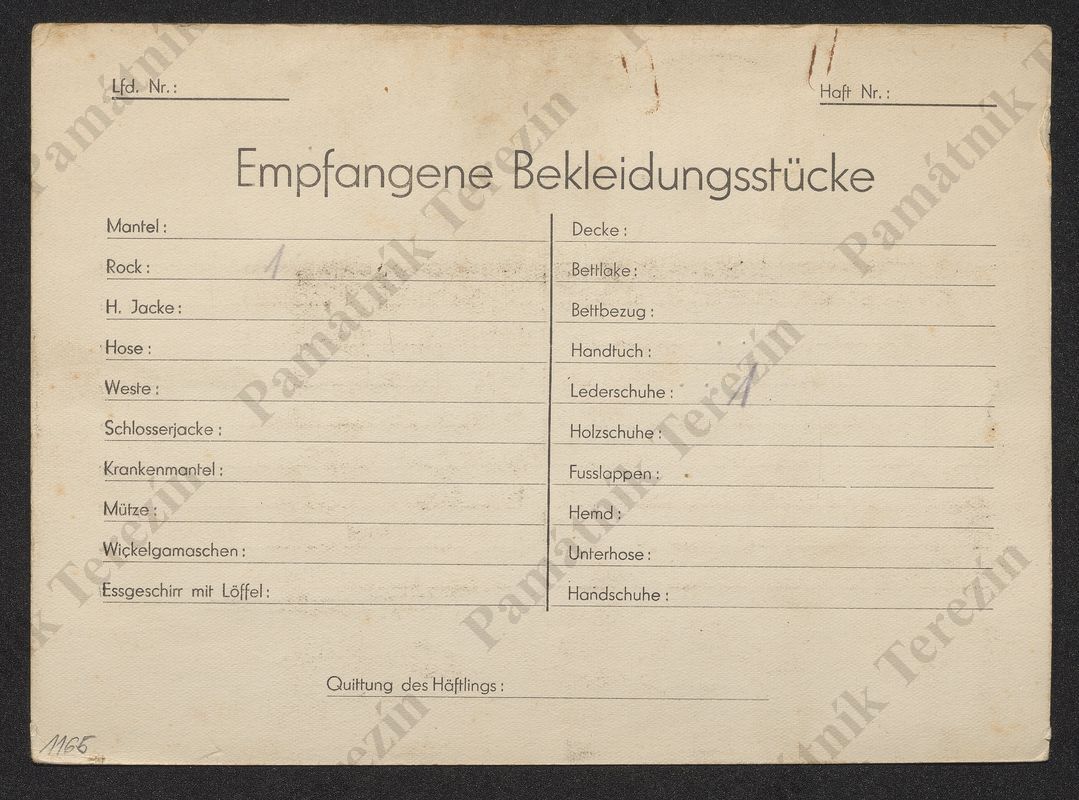 Lfd. Nr.:
Haft Nr.:
Empfangene Bekleidungsstücke
Mantel:
Rock: 1
H. Jacke:
Hose:
Weste:
Schlosserjacke:
Krankenmantel:
Mütze:
Wickelgamaschen:
Essgeschirr mit Löffel:
Decke:
Bettlake:
Bettbezug:
Handtuch:
Lederschuhe: 1
Holzschuhe:
Fusslappen:
Hemd:
Unterhose:
Handschuhe:
Quittung des Häftlings:
1165
Památník Terezín
Památník Terezín
Památník Terezín
Památník Terezín